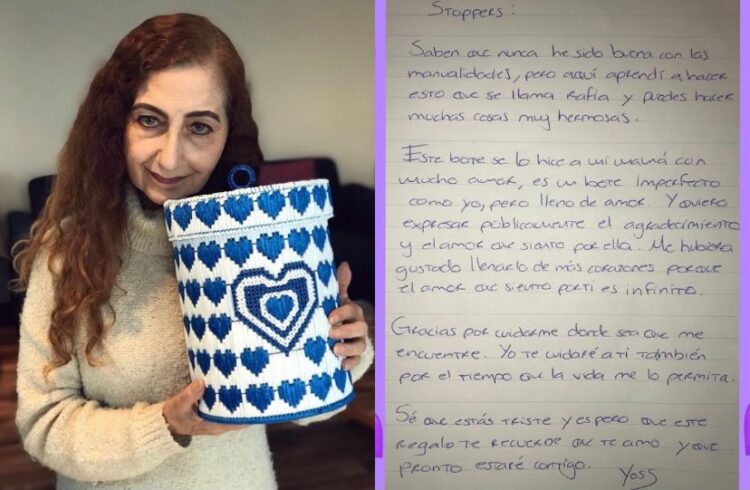 Stoppers:
Saben que nunca he sido buena con las
manualidades, pero aquí aprendí a hacer
esto que se llama Rafia y puedes hacer
muchas cosas muy hermosas.
Este bote se lo hice a mi mamá con
mucho amor, es un bote imperfecto
como yo, pero lleno de amor. Y quiero
expresar públicamente el agradecimiento
y el amor que siento por ella. Me hubiera
gustado llenarlo de más corazones porque
el amor que siento por ti es infinito.
Gracias por cuidarme donde sea que me
encuentre. Yo te cuidaré a ti también
por el tiempo que la vida me lo permita.
Sé que estás triste y espero que este
regalo te recuerde que te amo y que
pronto estaré contigo. Yoss